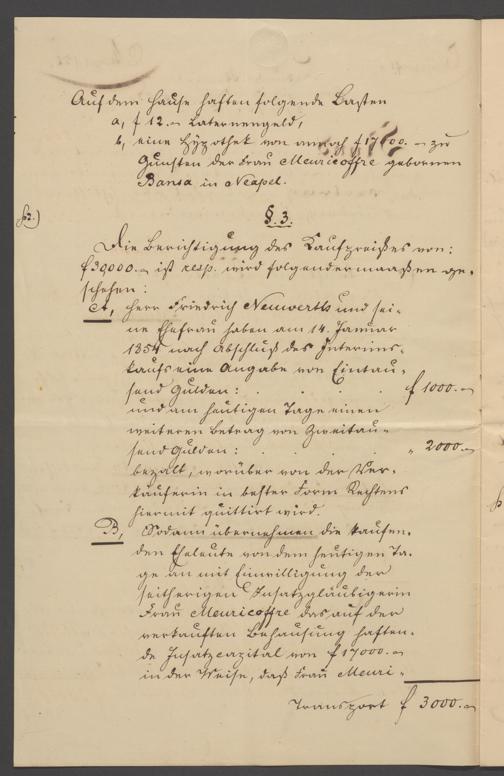 Auf dem Hause haften folgende Lasten
a, f 12.— Laternengeld,
b, eine Hypothek von annoch f 17000.— zu
Gunsten der Frau Meuricoffre gebornen
Bansa in Neapel.
p2.)
§. 3.
Die Berichtigung des Kaufpreißes von:
f 30,000.— ist resp. wird folgendermaaßen ge-
schehen:
A, Herr Friedrich Neuwerth und sei-
ne Ehefrau haben am 14. Januar
1854 nach Abschluß des Interims-
kaufs eine Angabe von Eintau-
send Gulden: . . . . f 1000.—
und am heutigen Tage einen
weiteren Betrag von Zweitau-
send Gulden: . . . . " 2000.—
bezalt, worüber von der Ver-
käuferin in bester Form Rechtens
hiermit quittirt wird.
B, Sodann übernehmen die kaufen-
den Eheleute von dem heutigen Ta-
ge an mit Einwilligung der
seitherigen Insatzgläubigerin
Frau Meuricoffre das auf der
verkauften Behausung haften-
de Insatzcapital von f 17000.—
in der Weise, daß Frau Meuri-
Transport f 3000.—